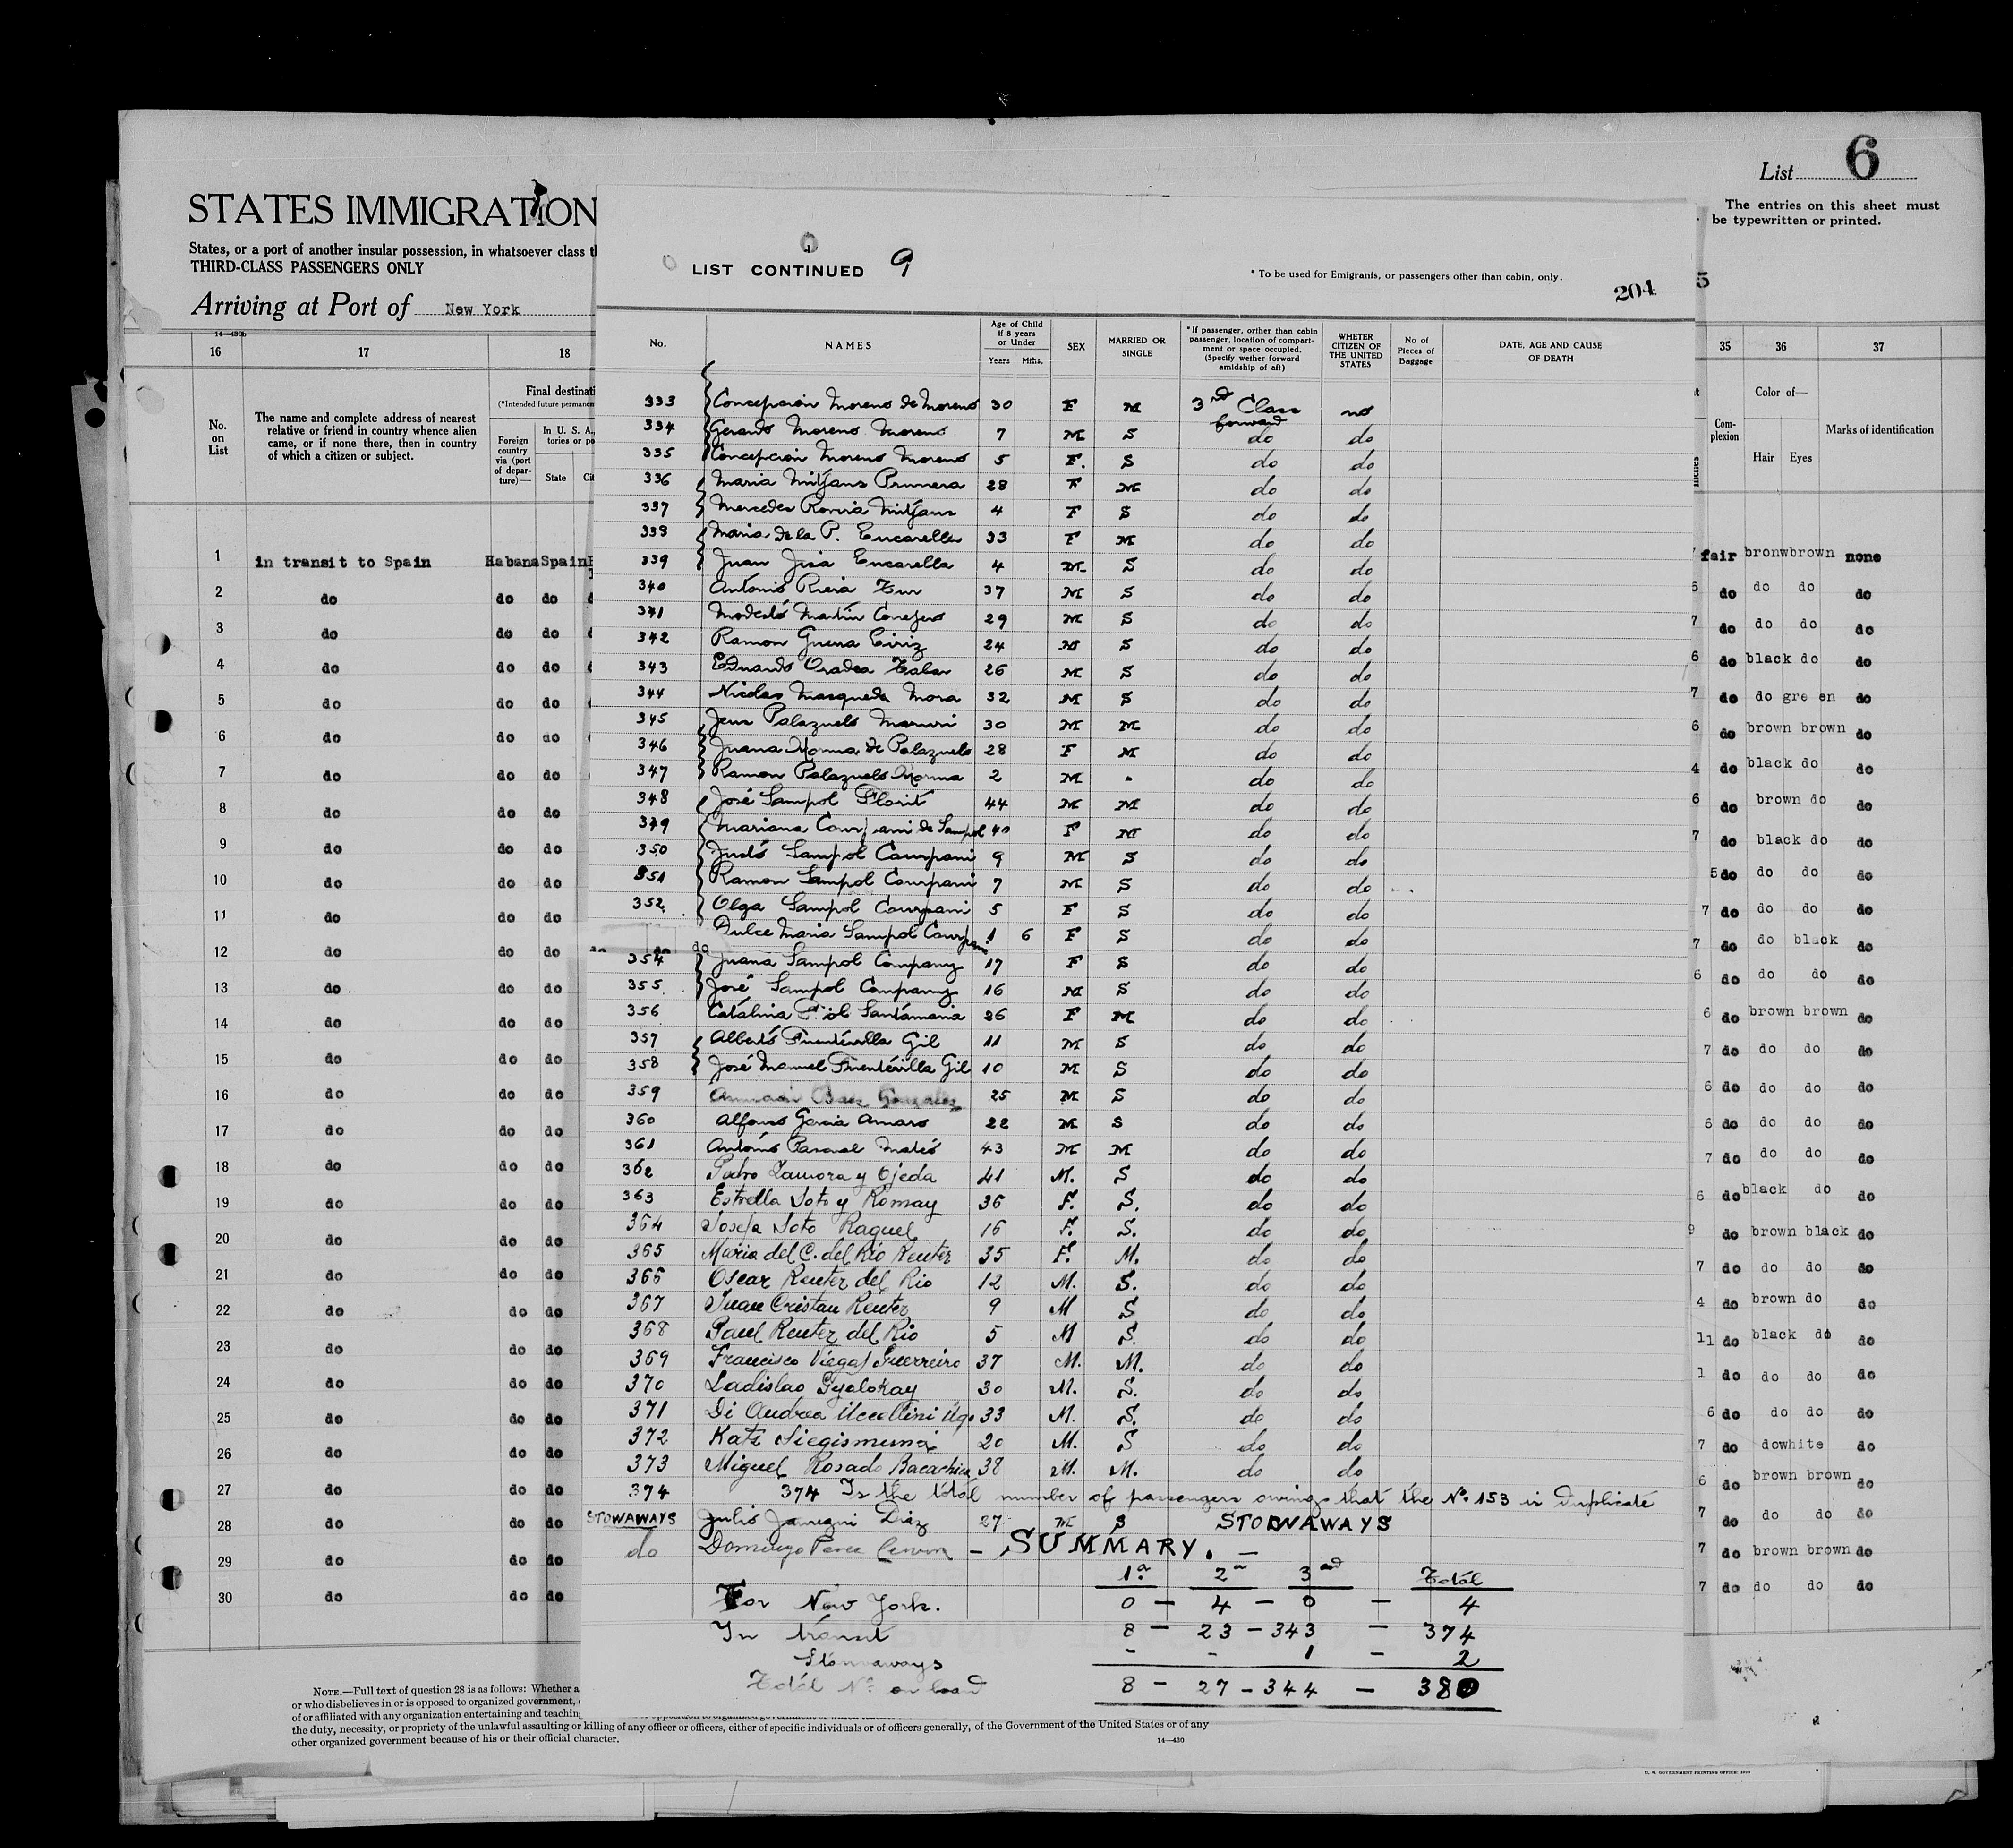 List 6
The entries on this sheet must
be typewritten or printed.
STATES IMMIGRATION
States, or a port of another insular possession, in whatsoever class
THIRD-CLASS PASSENGERS ONLY
Arriving at Port of New York
14—430b
16 17 18
No. on List
The name and complete address of nearest relative or friend in country whence alien came, or if none there, then in country of which a citizen or subject.
Final destinati
(*Intended future permanen
Foreign country via (port of depar-ture)—
In U. S. A., tories or po
State
1 in transit to Spain Habana Spain
2 do do do
3 do do do
4 do do do
5 do do do
6 do do do
7 do do do
8 do do do
9 do do do
10 do do do
11 do do do
12 do do do
13 do do do
14 do do do
15 do do do
16 do do do
17 do do do
18 do do do
19 do do do
20 do do do
21 do do do
22 do do do
23 do do do
24 do do do
25 do do do
26 do do do
27 do do do
28 do do do
29 do do do
30 do do do
LIST CONTINUED 9
* To be used for Emigrants, or passengers other than cabin, only.
204
No. NAMES
Age of Child if 8 years or Under
Years Mths.
SEX
MARRIED OR SINGLE
*If passenger, orther than cabin passenger, location of compart-ment or space occupied. (Specify wether forward amidship of aft)
WHETER CITIZEN OF THE UNITED STATES
No of Pieces of Baggage
DATE, AGE AND CAUSE OF DEATH
333 Concepción Moreno de Moreno 30 F M 3rd Class forward no
334 Gerardo Moreno Moreno 7 M S do do
335 Concepcion Moreno Moreno 5 F. S do do
336 Maria Mitjans Prunera 28 F M do do
337 Mercedes Rovira Mitjans 4 F S do do
338 Maria de la P. Eucarella 33 F M do do
339 Juan Eucarella 4 M S do do
340 Antonio Riera Tur 37 M S do do
341 Modesto Martin Conejero 29 M S do do
342 Ramon Guerra Eiriz 24 M S do do
343 Eduardo 26 M S do do
344 Nicolas Mosqueda Mora 32 M S do do
345 Palazuelo 30 M M do do
346 Juana de Palazuelo 28 F M do do
347 Ramon Palazuelo 2 M - do do
348 José Sampol Florit 44 M M do do
349 Mariana de Sampol 40 F M do do
350 Justo Sampol Company 9 M S do do
351 Ramon Sampol Company 7 M S do do
352 Olga Sampol Company 5 F S do do
Dulce Maria Sampol 1 6 F S do do
354 Juana Sampol Company 17 F S do do
355 José Sampol Company 16 M S do do
356 Catalina Santamaria 26 F M do do
357 Alberto Fuentevilla Gil 11 M S do do
358 José Manuel Fuentevilla Gil 10 M S do do
359 Gonzalez 25 M S do do
360 Alfonso Garcia Amaro 22 M S do do
361 Antonio Pascual 43 M M do do
362 Pedro Zamora y Ojeda 41 M. S do do
363 Estrella Soto y Romay 36 F. S. do do
364 Josefa Soto Raquel 16 F. S. do do
365 Maria del C. del Rio Reuter 35 F. M. do do
366 Oscar Reuter del Rio 12 M. S. do do
367 Juan Cristan Reuter 9 M S do do
368 Paul Reuter del Rio 5 M S. do do
369 Francisco Viegas Guerreiro 37 M. M. do do
370 Ladislao Gyalokay 30 M. S. do do
371 Di Andrea Uccellini Ugo 33 M. S. do do
372 Katz Siegismund 20 M. S do do
373 Miguel Rosado 38 M. M. do do
374 374 Is the total number of passengers owings that the No. 153 is Duplicate
STOWAWAYS Julio Diaz 27 M S STOWAWAYS
do Domingo
— SUMMARY. —
1a 2a 3rd Total
For New York. 0 — 4 — 0 — 4
In transit 8 — 23 — 343 — 374
Stowaways - - 1 — 2
Total No. on board 8 — 27 — 344 — 380
35 36 37
Com-plexion
Color of—
Hair Eyes
Marks of identification
fair bronwbrown none
6 do do do do
7 do do do do
6 do black do do
7 do do gre en do
6 do brown brown do
4 do black do do
6 do brown do do
7 do black do do
5 do do do do
7 do do do do
7 do do black do
6 do do do do
6 do brown brown do
7 do do do do
6 do do do do
6 do do do do
7 do do do do
6 do black do do
9 do brown black do
7 do do do do
4 do brown do do
11 do black do do
1 do do do do
6 do do do do
7 do dowhite do
6 do brown brown do
7 do do do do
7 do brown brown do
7 do do do do
NOTE.—Full text of question 28 is as follows: Whether a
or who disbelieves in or is opposed to organized government,
of or affiliated with any organization entertaining and teaching
the duty, necessity, or propriety of the unlawful assaulting or killing of any officer or officers, either of specific individuals or of officers generally, of the Government of the United States or of any
other organized government because of his or their official character.
14—430
U. S. GOVERNMENT PRINTING OFFICE: 1929